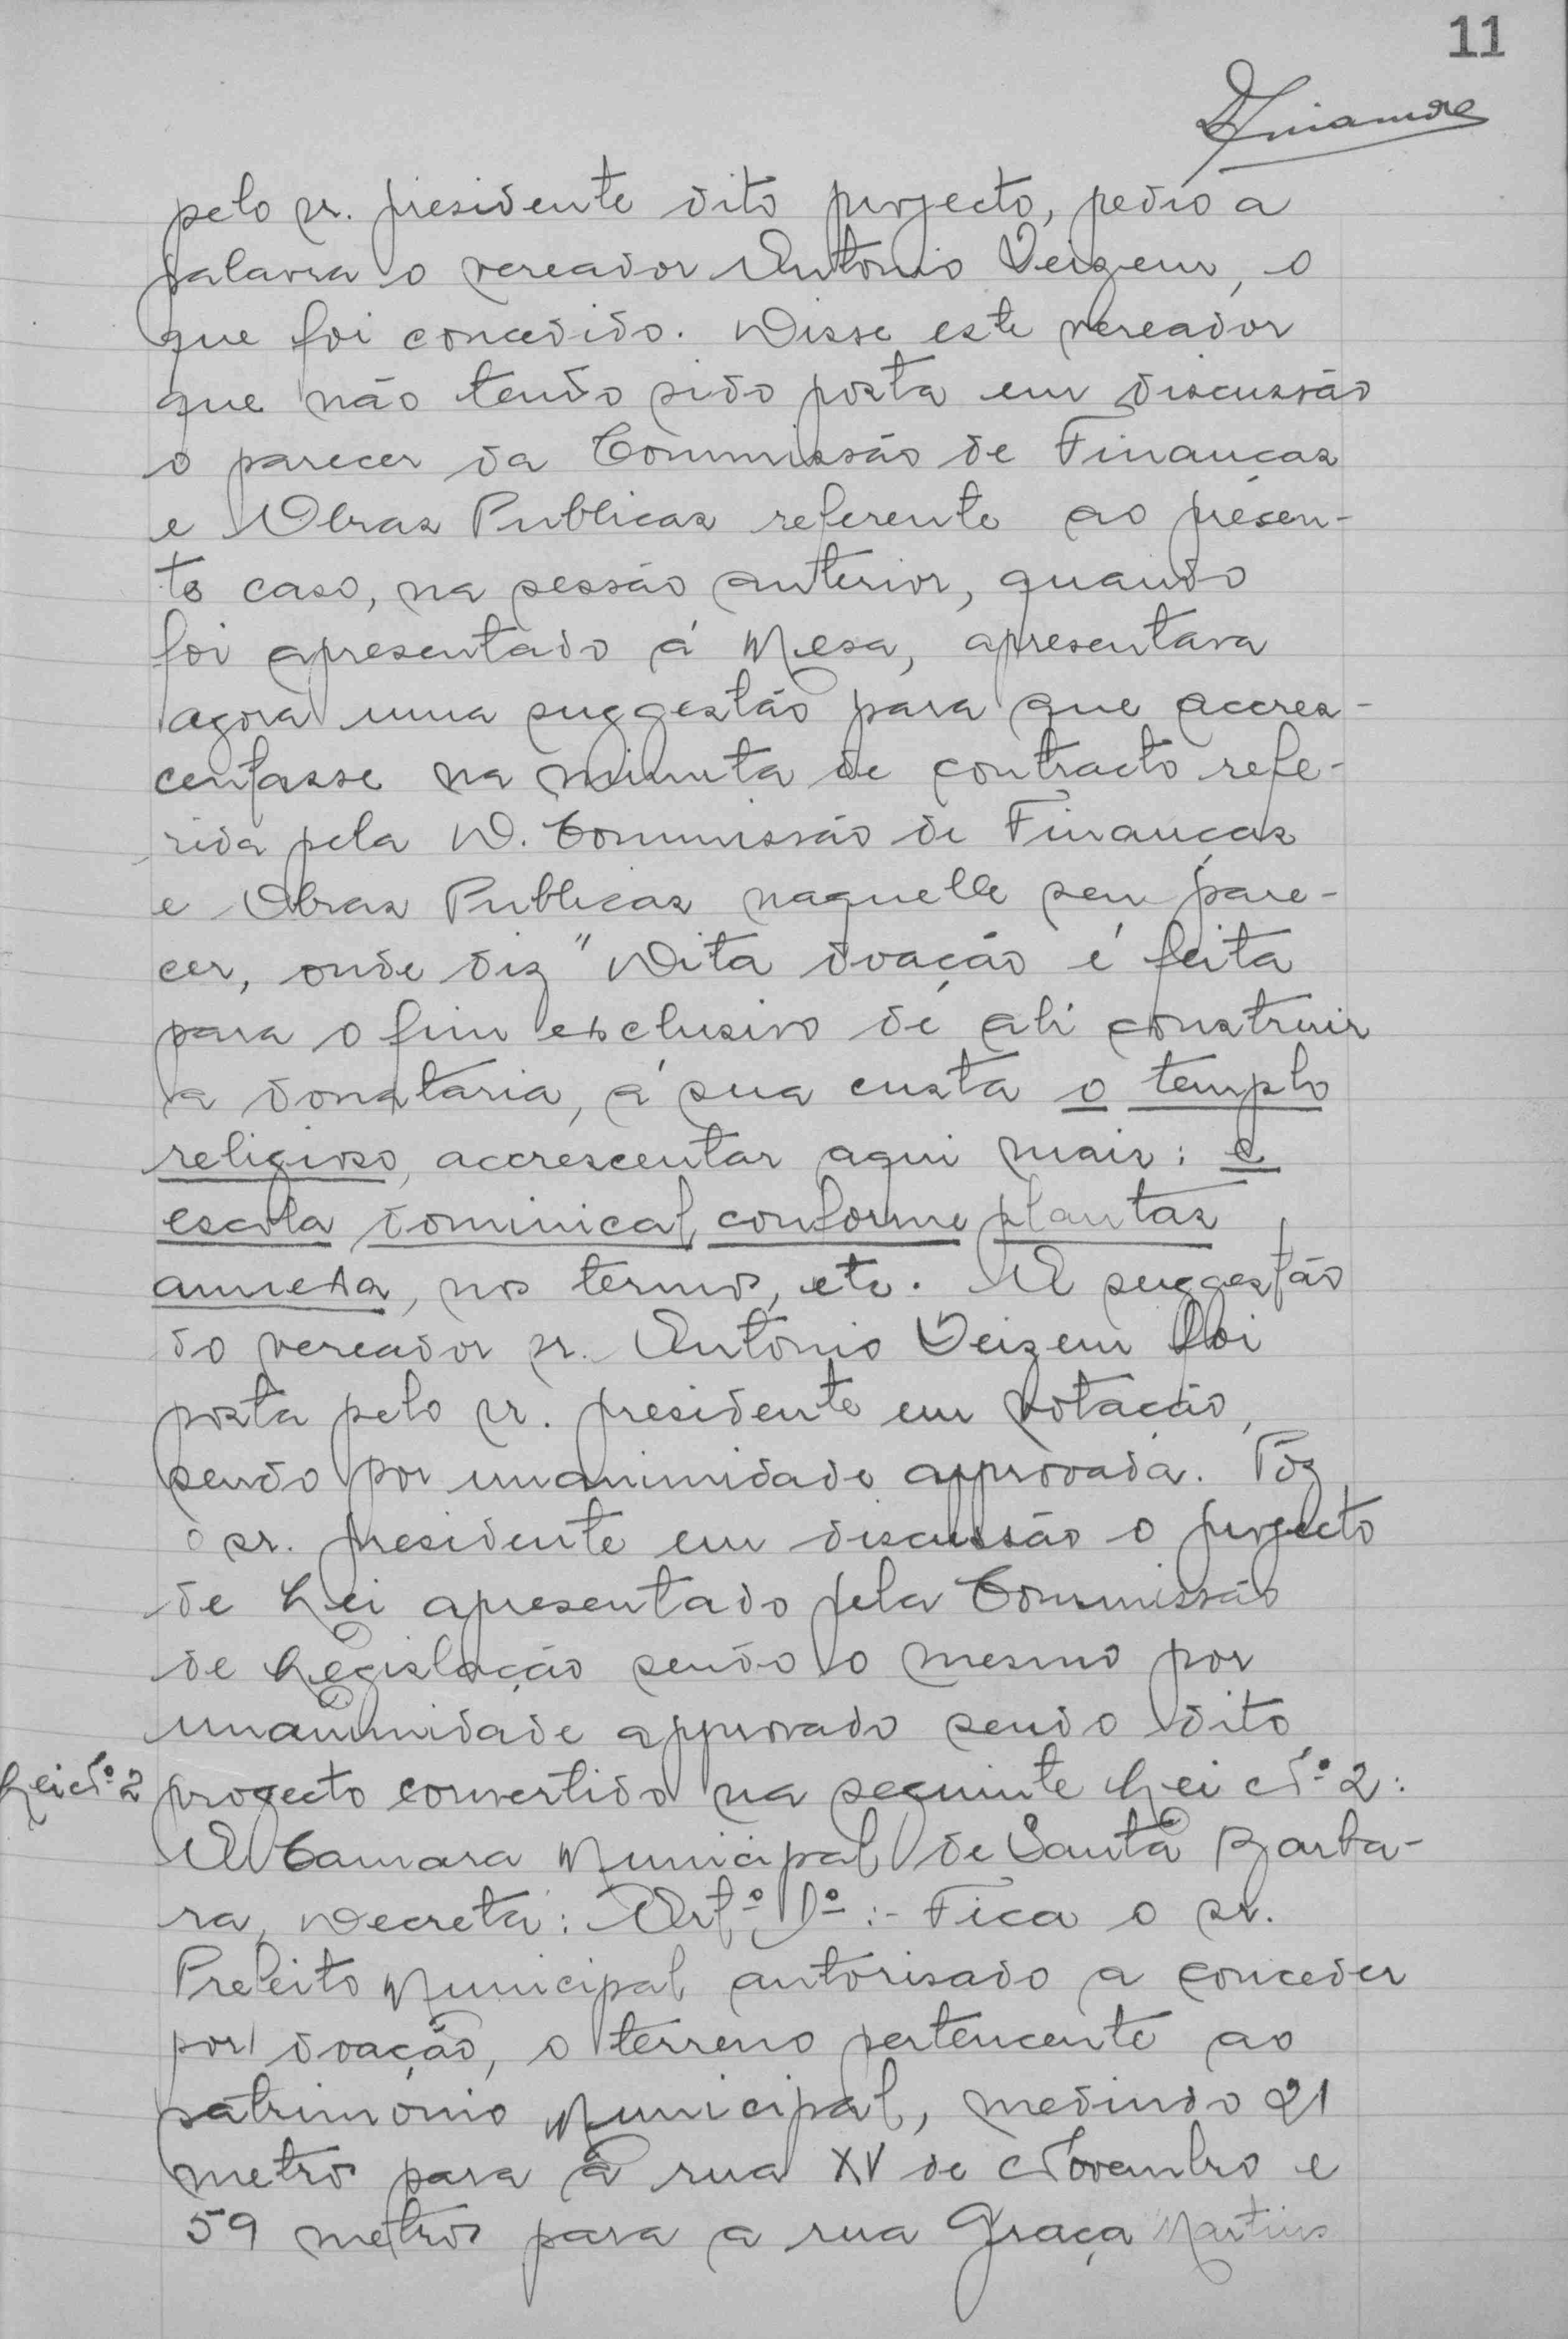 11
pelo sr. presidente dito projecto, pedio a
palavra o vereador Antonio Deizem, o
que foi concedido. Disse este vereador
que não tendo sido posta em discussão
o parecer da Commissão de Finanças
e Obras Publicas referente ao presen-
te caso, na sessão anterior, quando
foi apresentado á Mesa, apresentava
agora uma suggestão para que accres-
centasse na minuta de contracto refe-
rida pela D. Commissão de Finanças
e Obras Publicas naquelle seu pare-
cer, onde diz "Dita doação é feita
para o fim exclusivo de ali construir
a donataria, á sua custa o templo
religioso, accrescentar aqui mais: e
escola dominical conforme plantas
annexa, nos termos, etc. A suggestão
do vereador sr. Antonio Deizem foi
posta pelo sr. presidente em votação,
sendo por unanimidade approvada. Poz
o sr. presidente em discussão o projecto
de Lei apresentado pela Commissão
de Legislação sendo o mesmo por
unanimidade approvado sendo dito
Lei Nº 2 projecto convertido na seguinte Lei Nº 2:
A Camara Municipal de Santa Barba-
ra, Decreta: Artº 1º :- Fica o sr.
Prefeito Municipal autorisado a conceder
por doação, o terreno pertencente ao
patrimonio Municipal, medindo 21
metros para a rua XV de Novembro e
59 metros para a rua Graça Martins